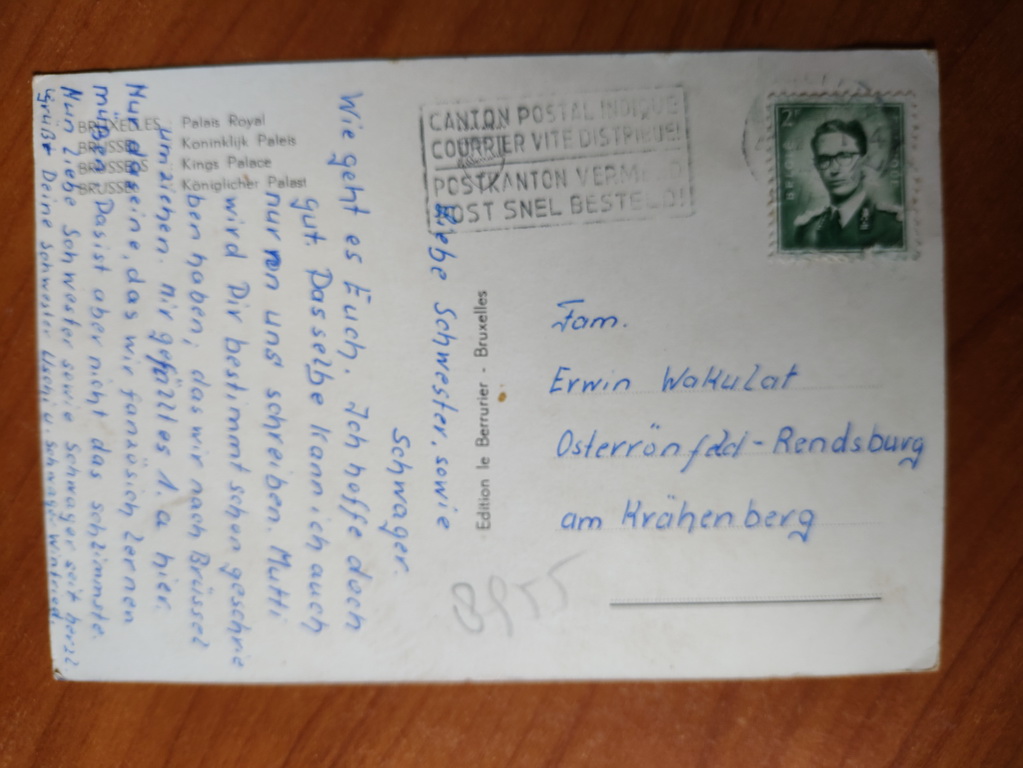 BRUXELLES - Palais Royal
BRUSSEL - Koninklijk Paleis
BRUSSELS - Kings Palace
BRUSSEL - Königlicher Palast
Liebe Schwester, sowie
Schwager.
Wie geht es Euch. Ich hoffe doch
gut. Dasselbe kann ich auch
nur von uns schreiben. Mutti
wird Dir bestimmt schon geschrie
ben haben, das wir nach Brüssel
umziehen. Mir gefällt es 1. a hier.
Nur das eine, das wir fanzösich lernen
müßen. Das ist aber nicht das schlimmste.
Nun liebe Schwester sowie Schwager seit herzl
Grüßt Deine Schwester Uschi u. Schwager Winfried.
Edition le Berrurier - Bruxelles
CANTON POSTAL INDIQUE
COURRIER VITE DISTRIBUE!
POSTKANTON VERMELD
POST SNEL BESTELD!
2F
Fam.
Erwin Wakulat
Osterrönfeld-Rendsburg
am Krähenberg